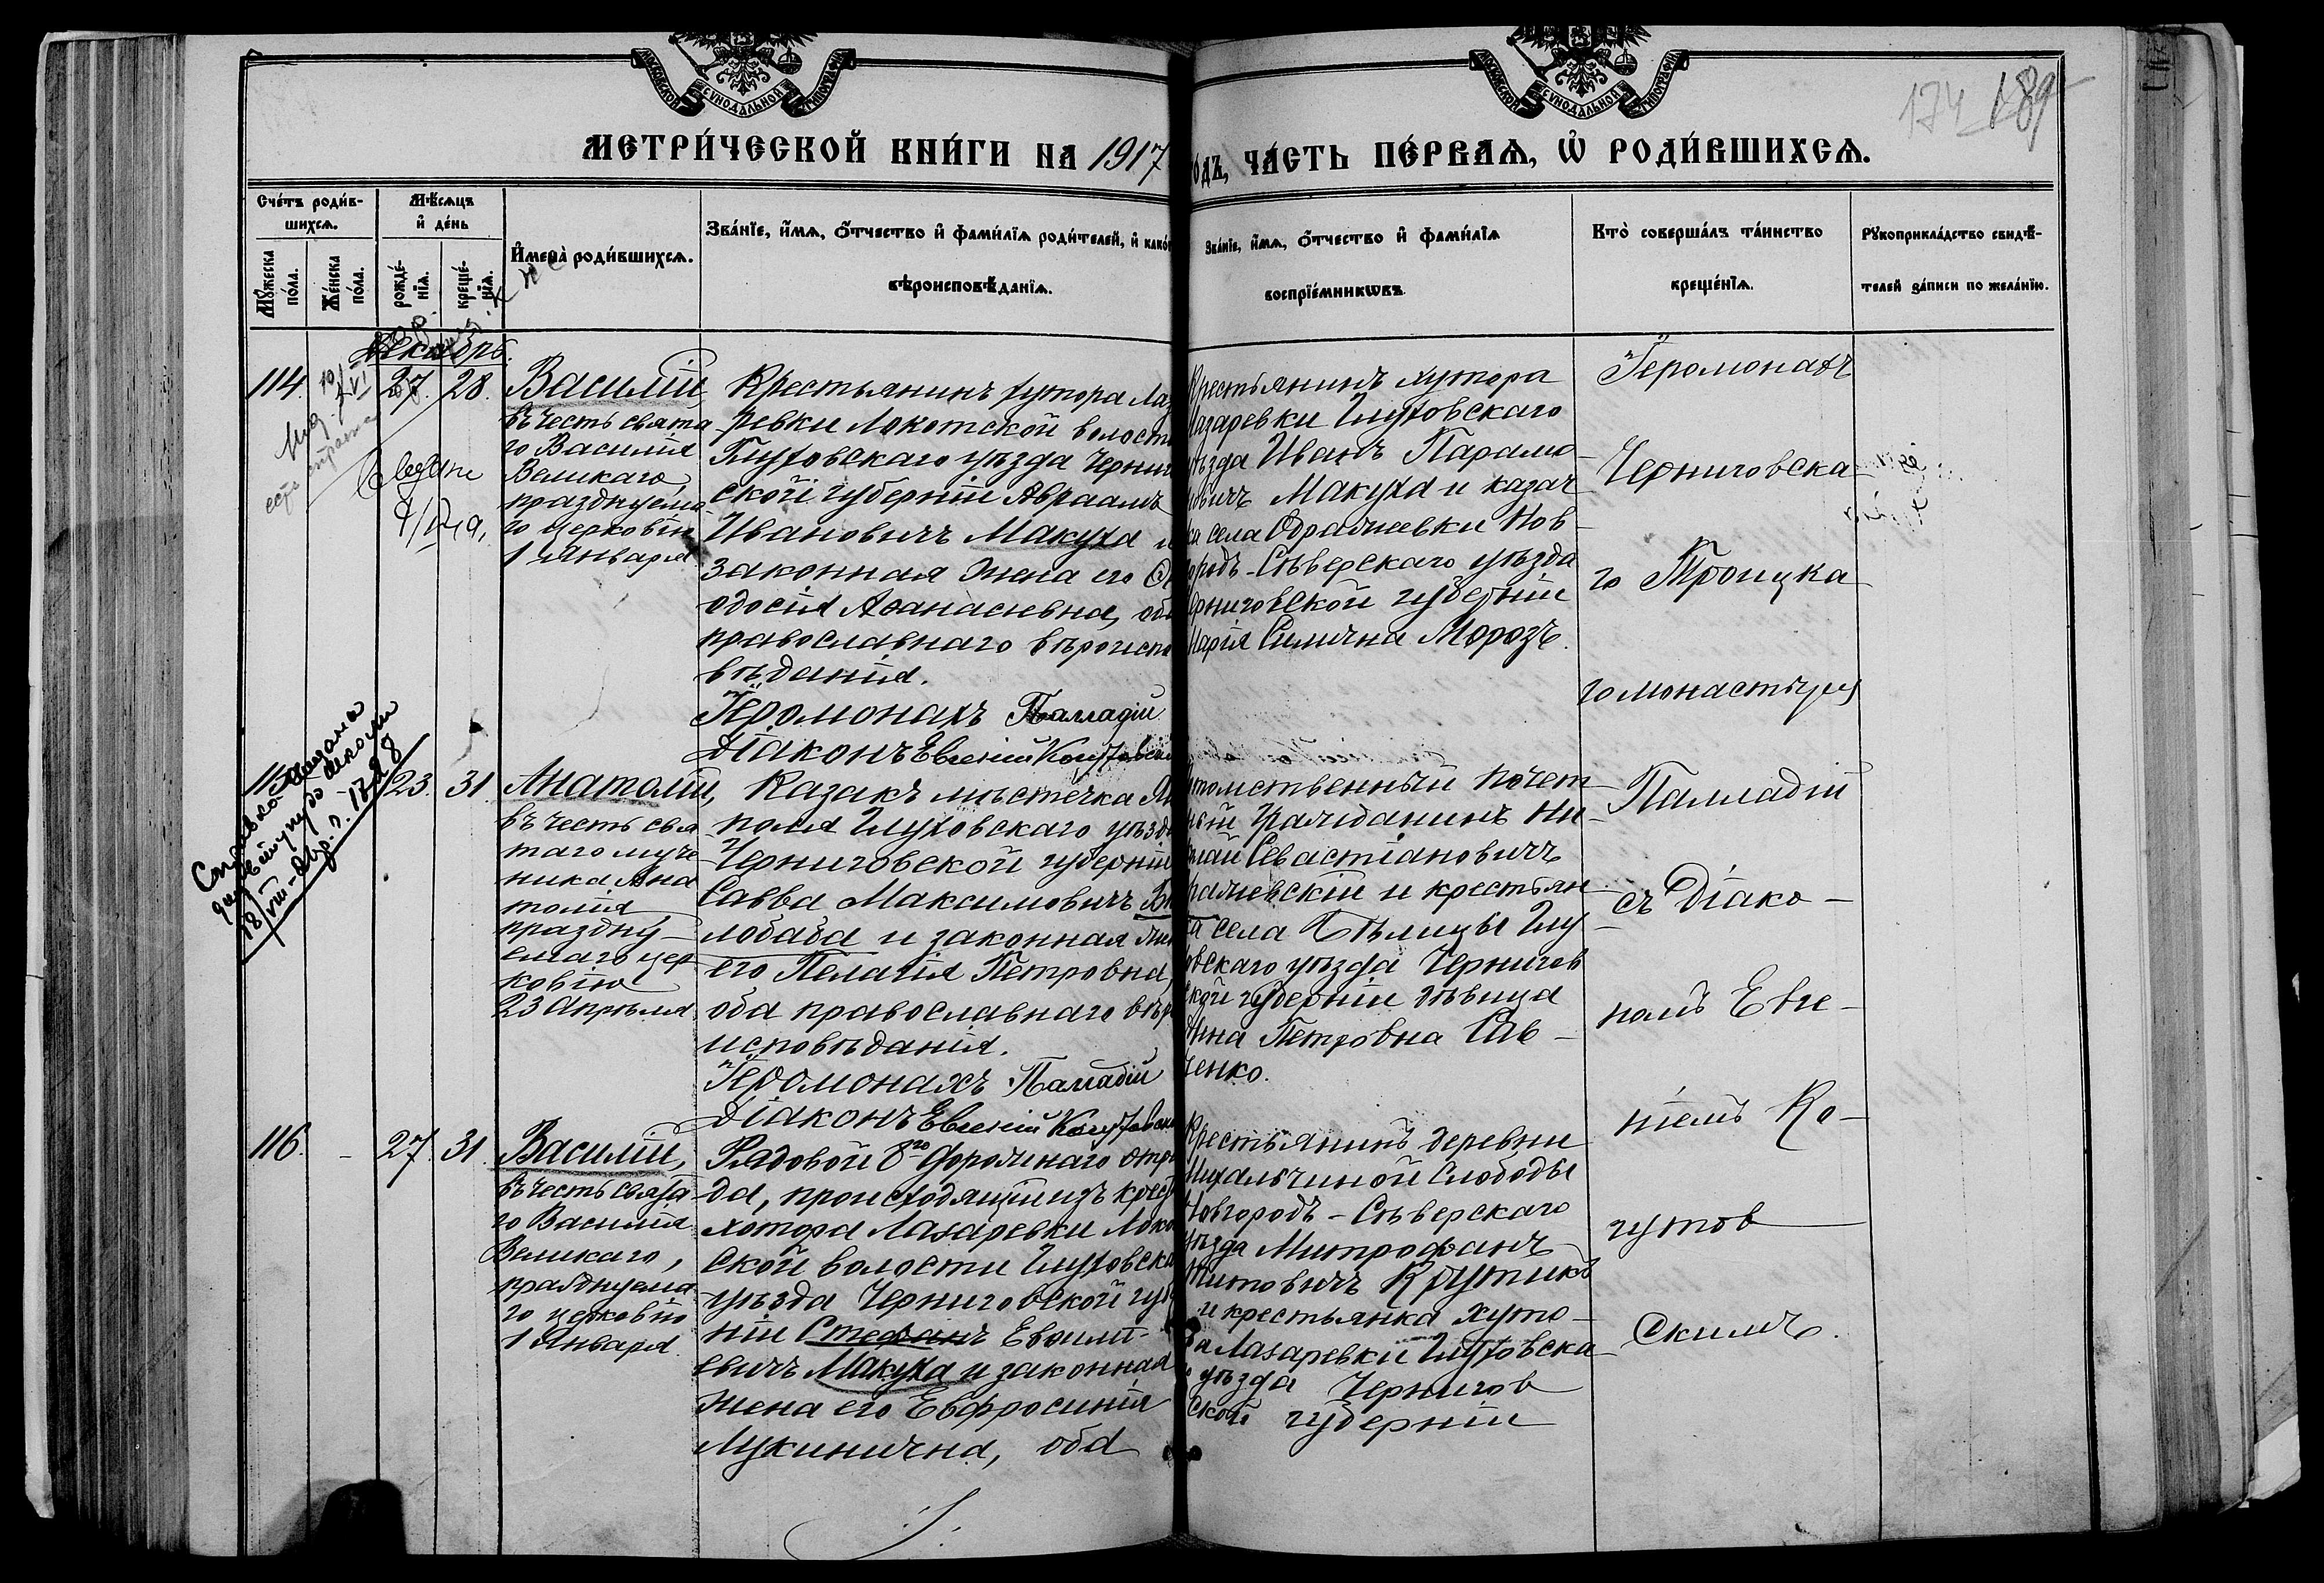 МОСКОВСКОЙ СѴНОДАЛЬНОЙ ТИПОГРАФІИ
МОСКОВСКОЙ СѴНОДАЛЬНОЙ ТИПОГРАФІИ
174 189
МЕТРИ́ЧЕСКОЙ КНИ́ГИ НА 1917
одъ, ЧА́СТЬ ПЕ́РВАЯ, Ѡ РОДИ́ВШИХСЯ.
Сче́тъ роди́в-
шихся.
Му́жеска по́ла.
Же́нска по́ла.
Мѣ́сяцъ
и де́нь
рожде́-
нїя.
креще́-
нїя.
И́мена̀ роди́вшихся.
Зва́нїе, и́мя, о́тчество и фами́лїя роди́телей, и како́
вѣроисповѣ́данїя.
Зва́нїе, и́мя, о́тчество и фами́лїя
воспрїе́мникѡвъ.
Кто̀ соверша́лъ та́инство
креще́нїя.
Рꙋкоприкла́дство свидѣ́-
телей за́писи по жела́нїю.
Декабрь.
114. 27. 28. Василій,
въ честь свята
го Василія
Великаго
празднуема-
го церковію
1 Января
Крестьянинъ хутора Лаз
ревки Локотской волости
Глуховскаго уѣзда Черниг
ской губерніи Авраамъ
Ивановичъ Макуха и
законная жена его Ѳе
одосія Аѳанасіевна, оба
православнаго вѣроиспо
вѣданія.
Іеромонахъ Палладій
Діаконъ Евгеній
Крестьянинъ хутора
Лазаревки Глуховскаго
уѣзда Иванъ Парамо-
новичъ Макуха и казач
ка села Ображеевки Нов-
ородъ-Сѣверскаго уѣзда
ерниговской губерніи
Марія Силична Морозъ.
115. 23. 31. Анатолій,
въ честь свя
таго муче
ника Ана
толія
праздну-
емаго цер
ковію
23 Апрѣля
Казакъ мѣстечка Ям
поля Глуховскаго уѣзда
Черниговской губерніи
Савва Максимовичъ
лобаба и законная жен
его Пелагія Петровна,
оба православнаго вѣро
исповѣданія.
Іеромонахъ Палладій
Діаконъ Евгеній
отомственный почет-
ный гражданинъ Ни-
олай Севастіановичъ
и крестьян
ка села Бѣлицы Глу-
овскаго уѣзда Чернигов
ской губерніи дѣвица
Анна Петровна Сав-
ченко.
116. - 27. 31. Василій,
въ честь свята
го Василія
Великаго,
празднуема
го церковію
1 Января.
Рядовой 8го дорожнаго отря
да, происходящій изъ крест
хутора Лазаревки Локо
ской волости Глуховска
уѣзда Черниговской губ
ніи Стефанъ
евичъ Макуха и законная
жена его Евфросинія
Лукинична, оба
Крестьянинъ деревни
Михальчиной Слободы
Новгородъ-Сѣверскаго
уѣзда Митрофанъ
Титовичъ
и крестьянка хуто-
ра Лазаревки Глуховска-
о уѣзда Чернигов
ской губерніи
Іеромонахъ
Черниговска-
го Троицка-
го монастыря
Палладій
съ Діако-
номъ Евге-
ніемъ Ко-
чутов
скимъ.
Справка
1928